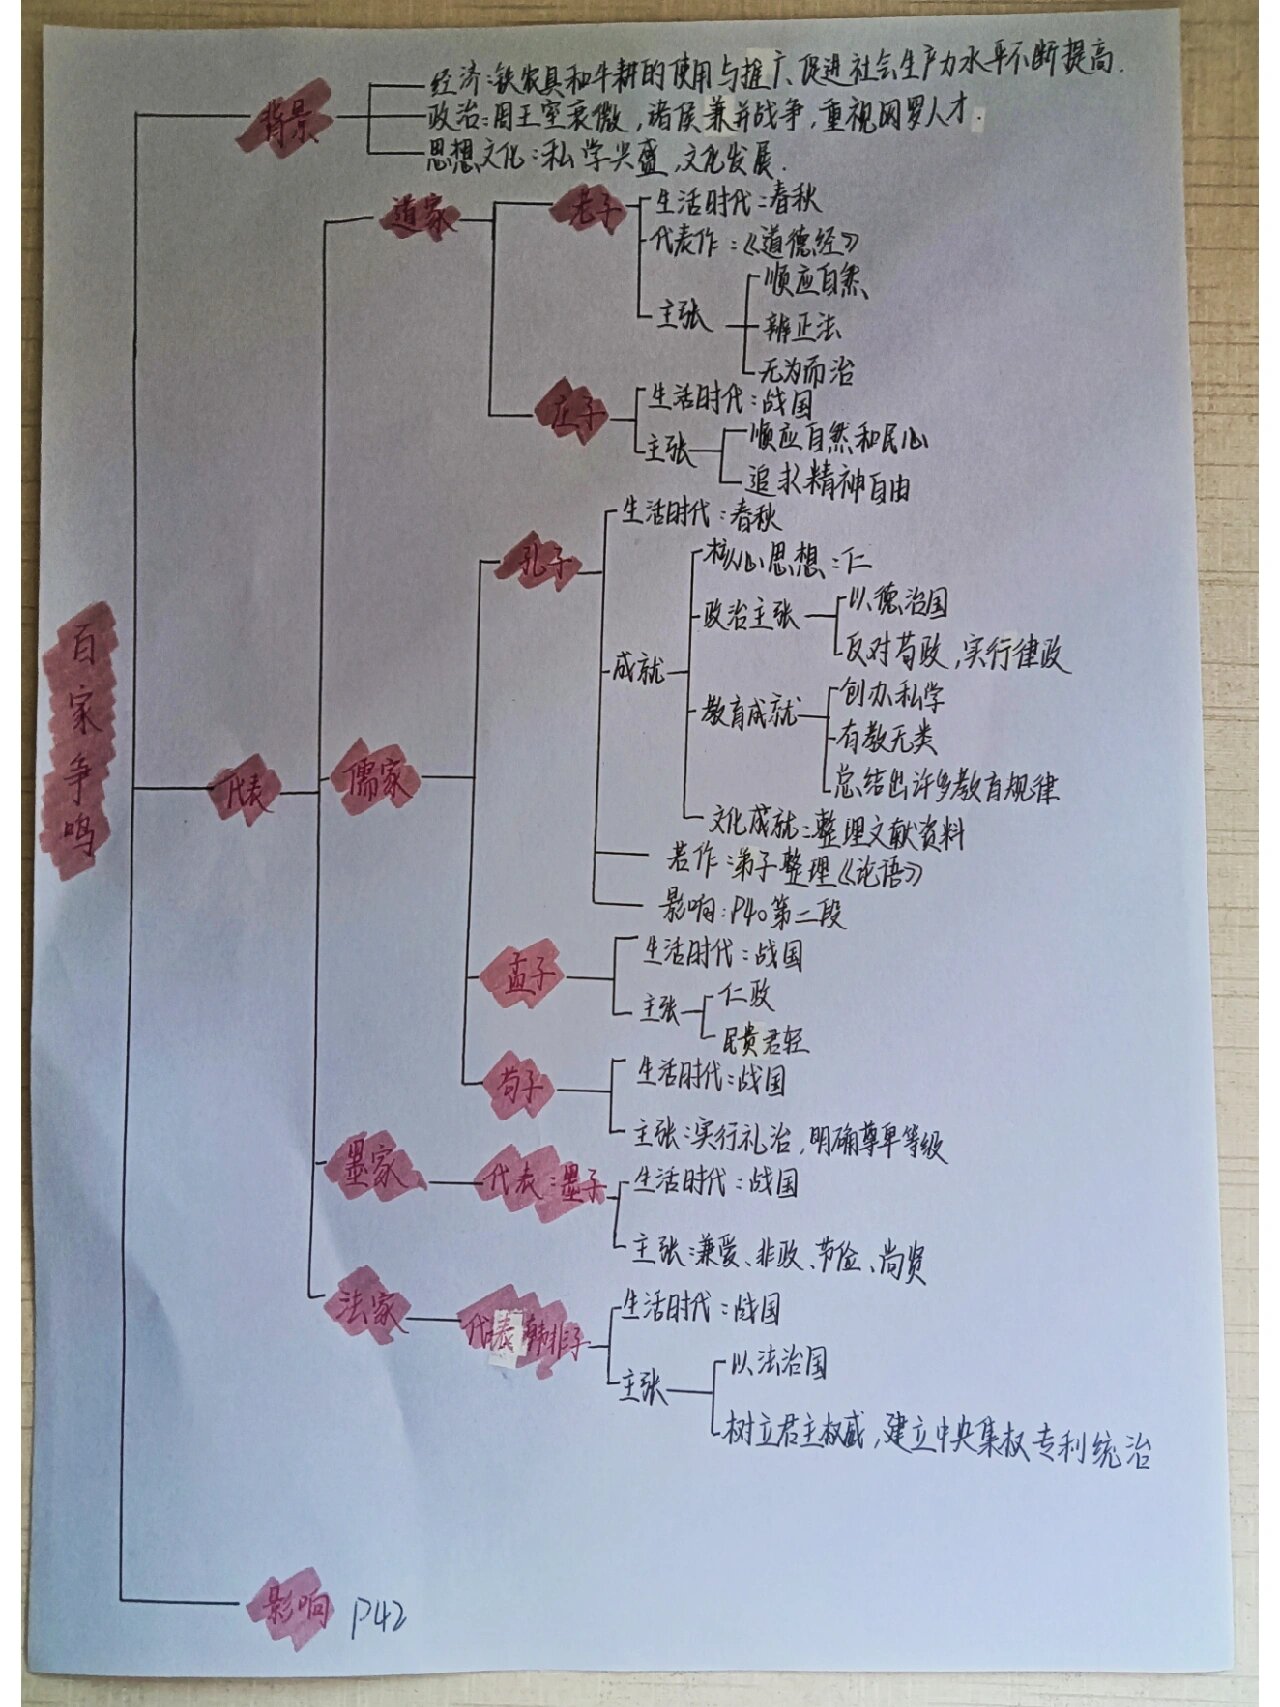 百家争鸣
背景
经济:铁农具和牛耕的使用与推广、促进社会生产力水平不断提高.
政治:周王室衰微,诸侯兼并战争,重视网罗人才.
思想文化:私学兴盛,文化发展.
代表
道家
老子
生活时代:春秋
代表作:《道德经》
主张
顺应自然
辨正法
无为而治
庄子
生活时代:战国
主张
顺应自然和民心
追求精神自由
儒家
孔子
生活时代:春秋
成就
核心思想:仁
政治主张
以德治国
反对苟政,实行律政
教育成就
创办私学
有教无类
总结出许多教育规律
文化成就:整理文献资料
著作:弟子整理《论语》
影响:P40第二段
孟子
生活时代:战国
主张
仁政
民贵君轻
荀子
生活时代:战国
主张:实行礼治,明确尊卑等级
墨家
代表:墨子
生活时代:战国
主张:兼爱、非政、节俭、尚贤
法家
代表 韩非子
生活时代:战国
主张
以法治国
树立君主权威,建立中央集权专利统治
影响 P42